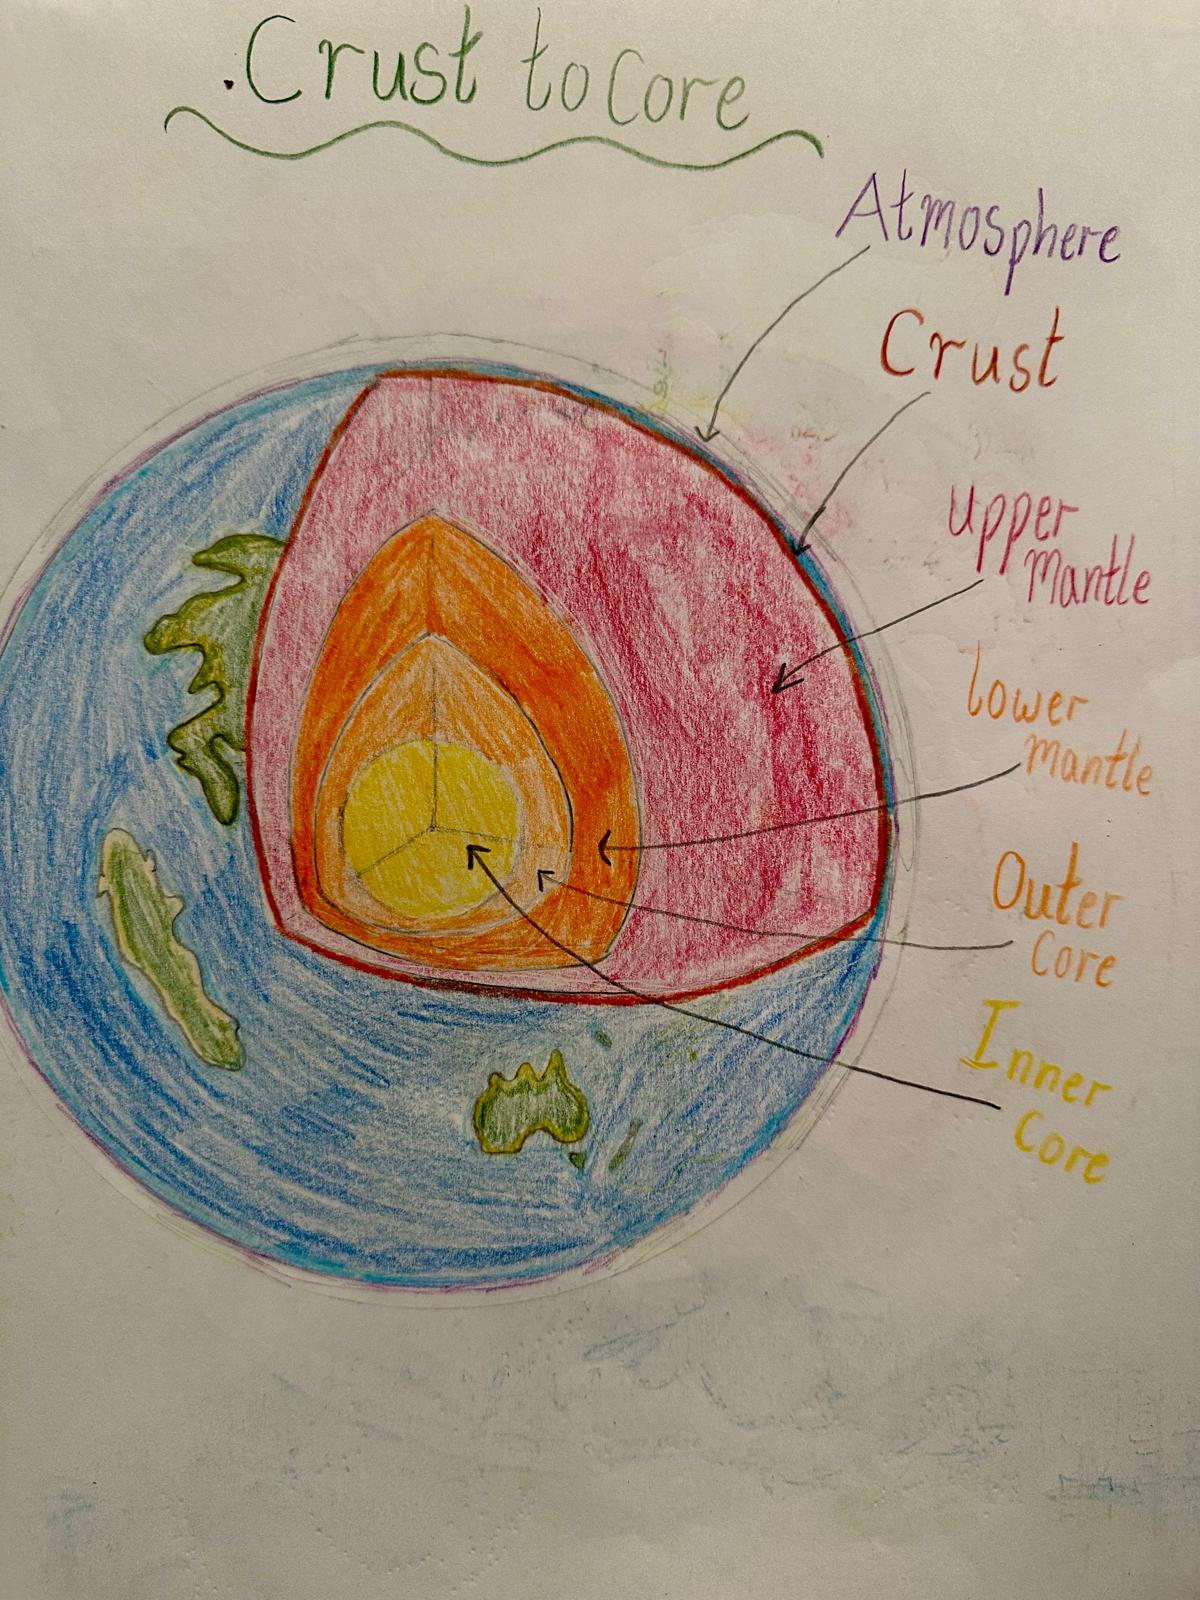 .Crust to Core
Atmosphere
Crust
Upper
Mantle
lower
mantle
Outer
Core
Inner
Core